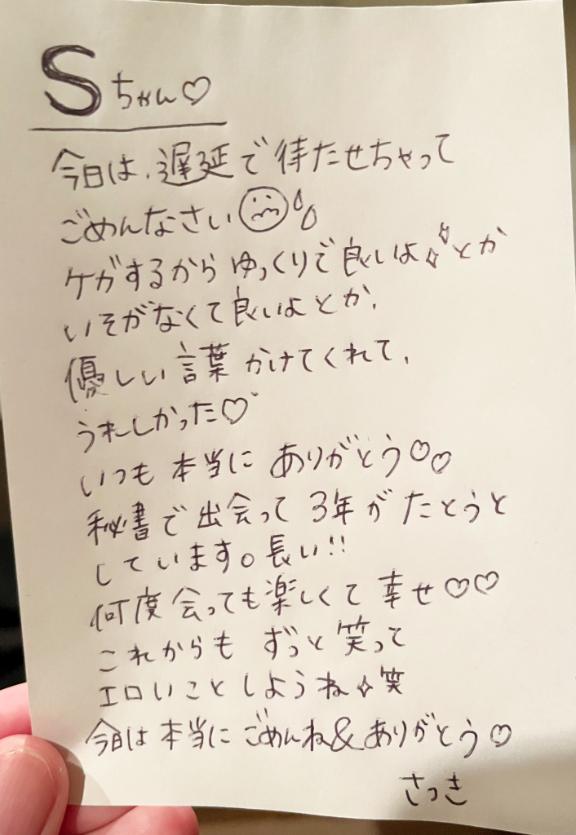 Sちゃん♡
今日は、遅延で待たせちゃって
ごめんなさい
ケガするからゆっくりで良いよとか
いそがなくて良いよとか、
優しい言葉かけてくれて、
うれしかった♡
いつも本当にありがとう♡♡
秘書で出会って3年がたとうと
しています。長い!!
何度会っても楽しくて幸せ♡♡
これからもずっと笑って
エロいことしようね✧笑
今日は本当にごめんね&ありがとう♡
さつき